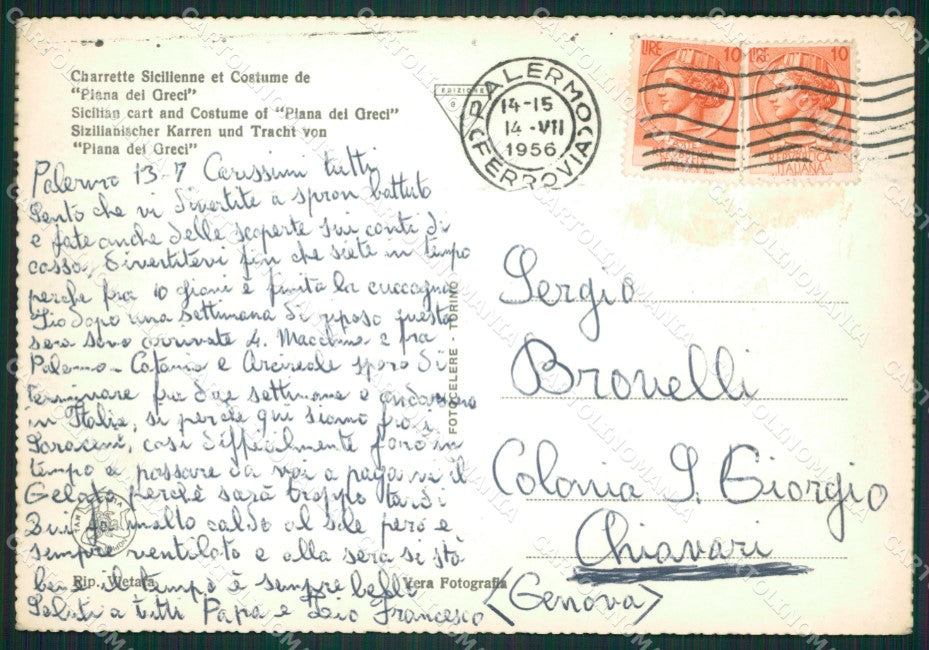 Charrette Sicilienne et Costume de
"Piana dei Greci"
Sicilian cart and Costume of "Piana dei Greci"
Sizilianischer Karren und Tracht von
"Piana dei Greci"
EDIZIONE
PALERMO
14-15
14-VII
1956
(FERROVIA)
LIRE 10
LIRE 10
REPVBBLICA
ITALIANA
Palermo 13-7 Carissimi tutti
Sento che vi divertite a spron battuto
e fate anche delle scoperte sui conti di
cassa, divertitevi fin che siete in tempo
perche fra 10 giorni è finita la cuccagna
Io dopo una settimana di riposo questa
sera sono arrivate 4 Macchine e fra
Palermo - Catania e Acireale spero di
terminare fra due settimane e andarsene
in Italia, si perche qui siamo fra i
Saraceni, cosi difficilmente farò in
tempo a passare da voi a pagarvi il
Gelato perchè sarà troppo tardi
Qui fa molto caldo al sole però è
sempre ventilato e alla sera si stà
bene il tempo è sempre bello
Saluti a tutti Papa e Zio Francesco
FOTOCELERE - TORINO
Rip. Vietata
Vera Fotografia
Sergio
Brovelli
Colonia S. Giorgio
Chiavari
(Genova)
CARTOLINOMANIA